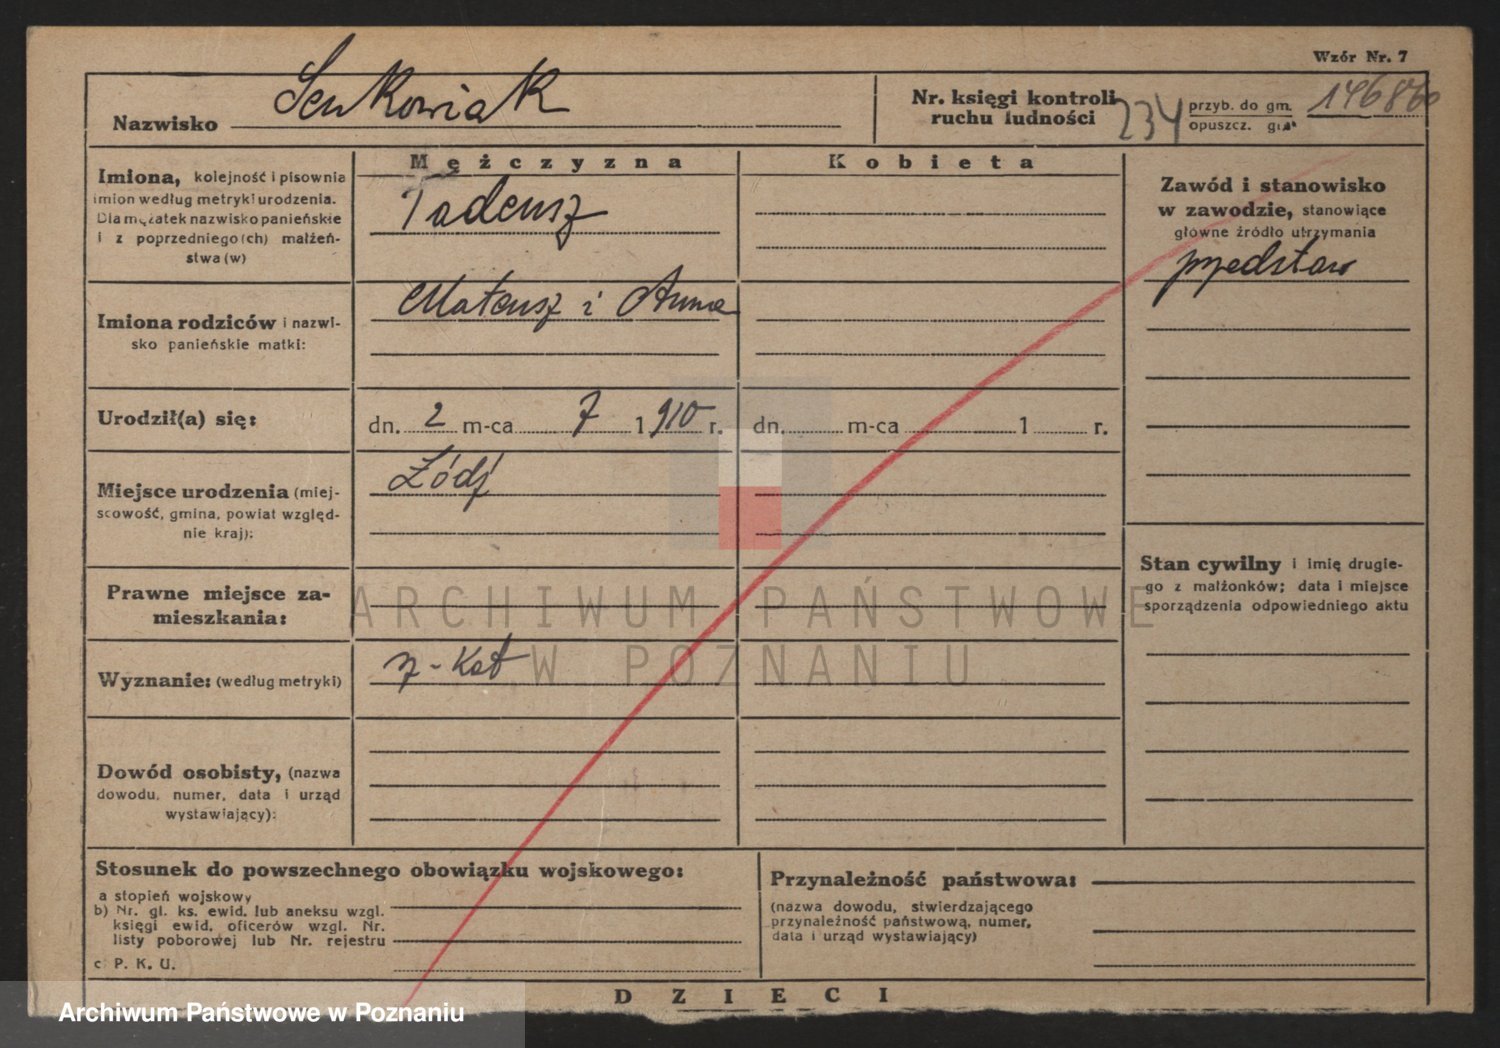 Wzór Nr. 7
Nazwisko Senkowiak
Nr. księgi kontroli
ruchu ludności
234
przyb. do gm.
opuszcz. gm.
Mężczyzna
Kobieta
Imiona, kolejność i pisownia
imion według metryki urodzenia.
Dla mężatek nazwisko panieńskie
i z poprzedniego(ch) małżeń-
stwa(w)
Tadeusz
Zawód i stanowisko
w zawodzie, stanowiące
główne źródło utrzymania
przedstaw
Imiona rodziców i nazwi-
sko panieńskie matki:
Mateusz i Anna
Urodził(a) się:
dn. 2 m-ca 7 1910 r.
dn. m-ca 1 r.
Miejsce urodzenia (miej-
scowość, gmina, powiat względ-
nie kraj):
Łódź
Stan cywilny i imię drugie-
go z małżonków; data i miejsce
sporządzenia odpowiedniego aktu
Prawne miejsce za-
mieszkania:
ARCHIWUM PAŃSTWOWE
W POZNANIU
Wyznanie: (według metryki)
rz-kat
Dowód osobisty, (nazwa
dowodu, numer, data i urząd
wystawiający):
Stosunek do powszechnego obowiązku wojskowego:
a stopień wojskowy
b) Nr. gl. ks. ewid. lub aneksu wzgl.
księgi ewid. oficerów wzgl. Nr.
listy poborowej lub Nr. rejestru
c P. K. U.
Przynależność państwowa:
(nazwa dowodu, stwierdzającego
przynależność państwową, numer,
data i urząd wystawiający)
DZIECI
Archiwum Państwowe w Poznaniu